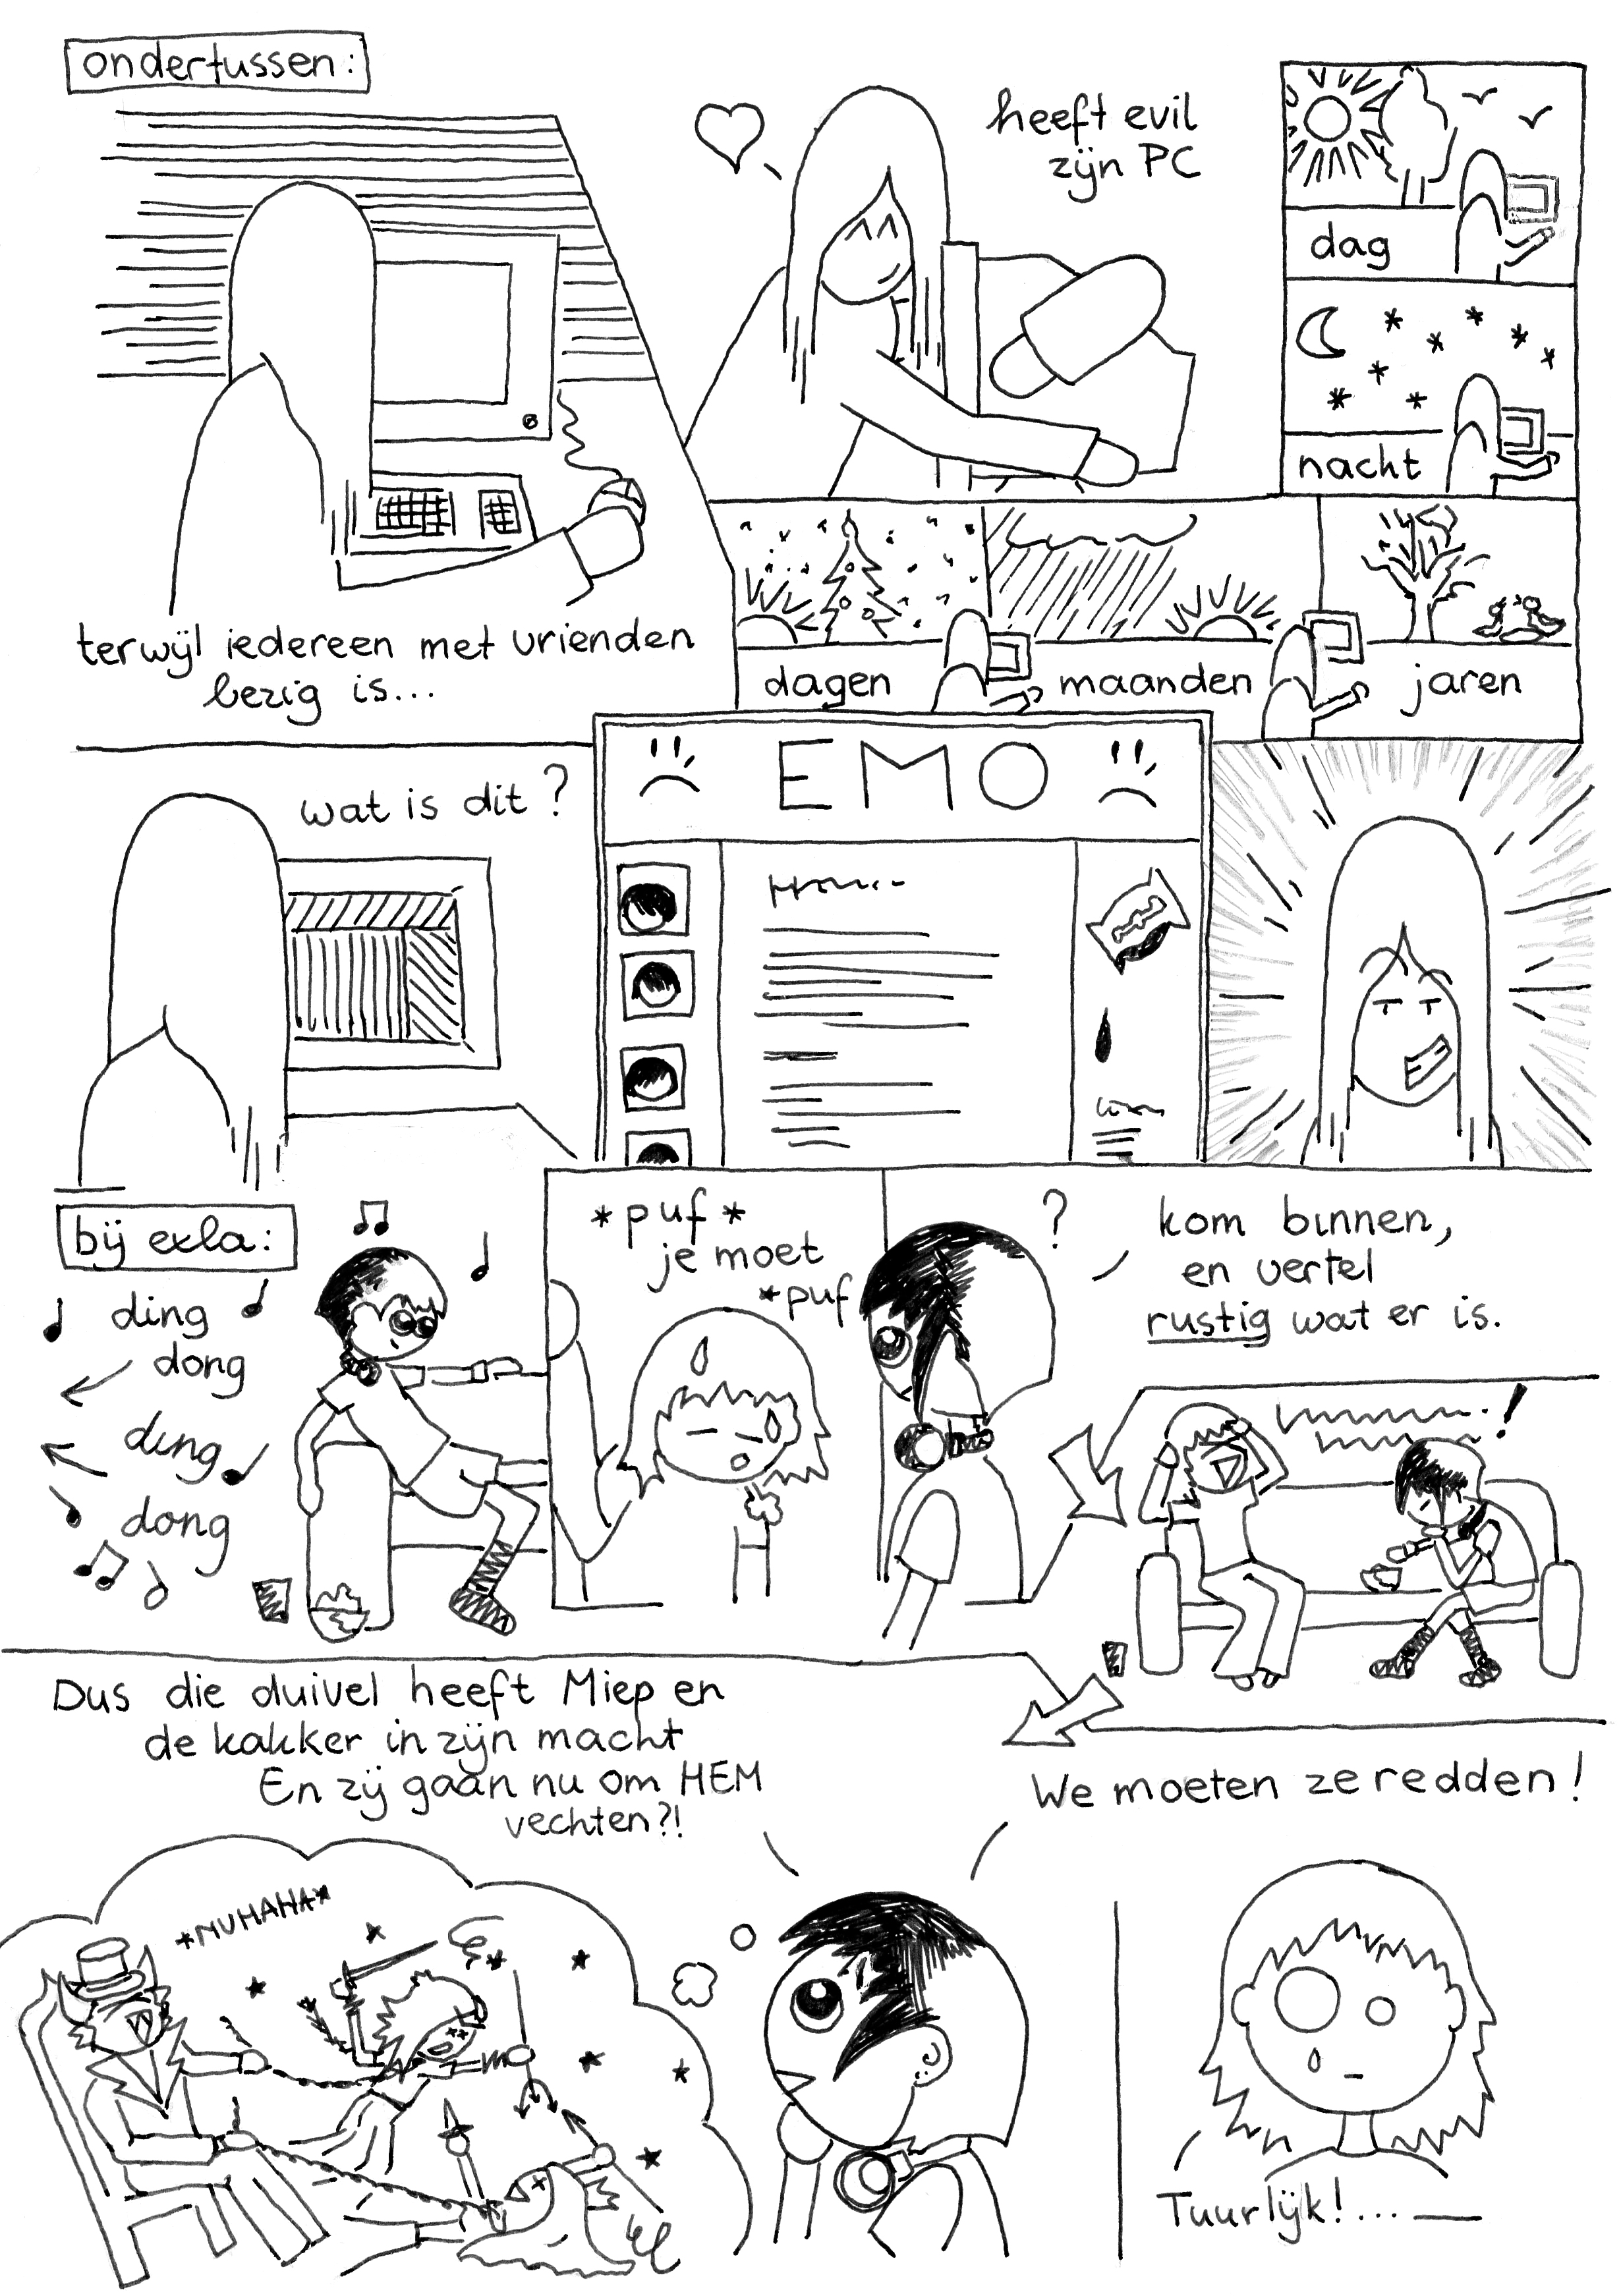 ondertussen:
terwijl iedereen met vrienden
bezig is...
heeft evil
zijn PC
dag
nacht
dagen
maanden
jaren
wat is dit?
EMO
bij exla:
ding
dong
ding
dong
*puf*
je moet
*puf
?
kom binnen,
en vertel
rustig wat er is.
!
Dus die duivel heeft Miep en
de kakker in zijn macht
En zij gaan nu om HEM
vechten?!
We moeten ze redden!
*MUHAHA*
Tuurlijk!...